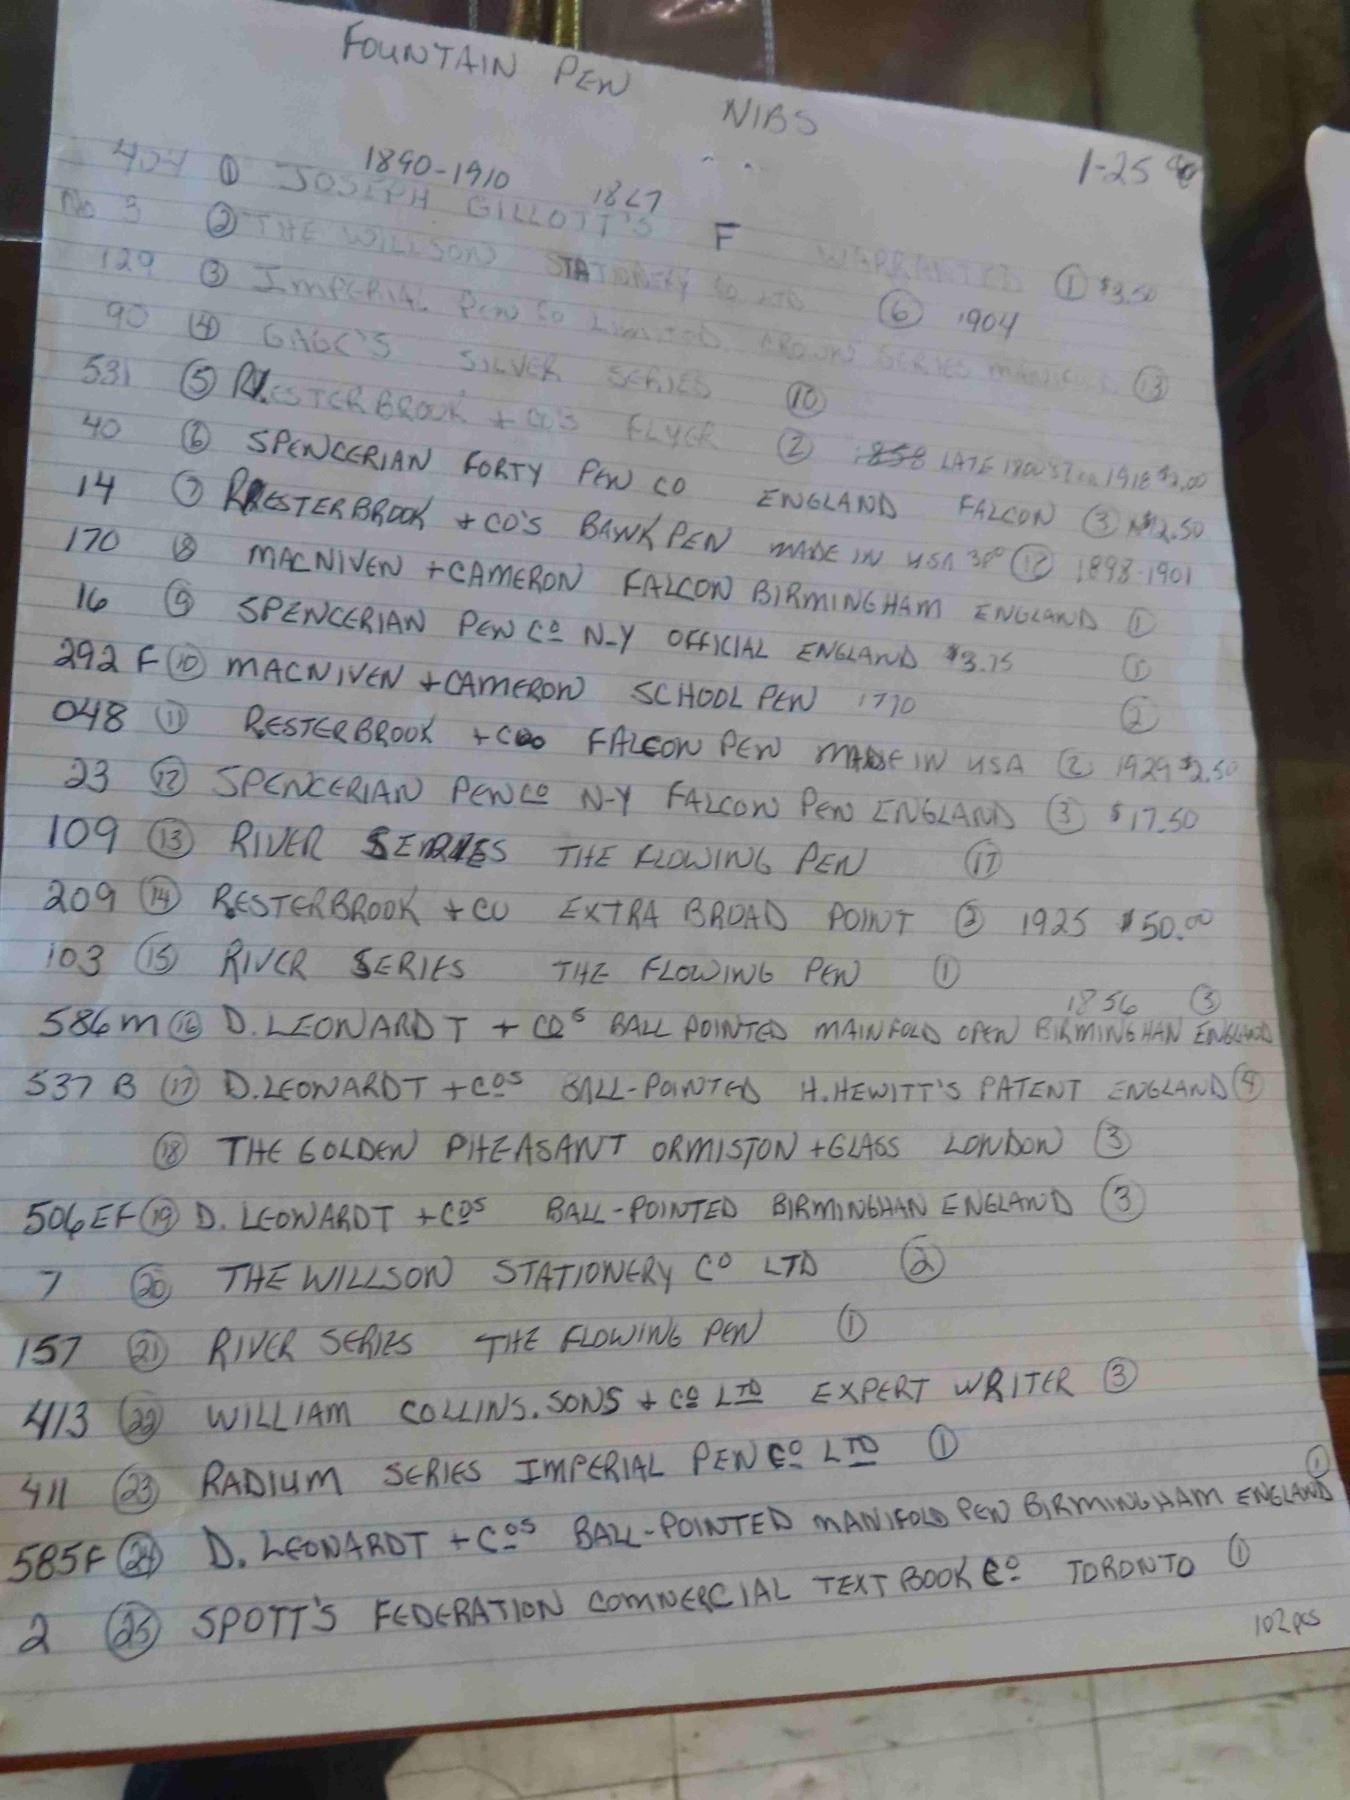 FOUNTAIN PEN NIBS
1-25
1890-1910 1867
404 ① JOSEPH GILLOTT'S F WARRANTED ① $3.50
No 3 ② THE WILLSON STATIONERY CO LTD ⑥ 1904
129 ③ IMPERIAL PEN CO LIMITED CROWN SERIES ⑬
90 ④ GAGE'S SILVER SERIES ⑩
531 ⑤ RESTERBROOK + CO'S FLYER ② 1858 LATE 1800'S 1918 $2.00
40 ⑥ SPENCERIAN FORTY PEN CO ENGLAND FALCON ③ $12.50
14 ⑦ RESTERBROOK + CO'S BANK PEN MADE IN USA ⑫ 1898-1901
170 ⑧ MACNIVEN + CAMERON FALCON BIRMINGHAM ENGLAND ①
16 ⑨ SPENCERIAN PEN CO N-Y OFFICIAL ENGLAND $3.75 ①
292 F ⑩ MACNIVEN + CAMERON SCHOOL PEN 1770 ②
048 ⑪ RESTERBROOK + CO FALCON PEN MADE IN USA ② 1929 $2.50
23 ⑫ SPENCERIAN PEN CO N-Y FALCON PEN ENGLAND ③ $17.50
109 ⑬ RIVER SERIES THE FLOWING PEN ⑰
209 ⑭ RESTERBROOK + CO EXTRA BROAD POINT ③ 1925 $50.00
103 ⑮ RIVER SERIES THE FLOWING PEN ①
1856 ③
586 M ⑯ D. LEONARDT + COS BALL POINTED MAINFOLD OPEN BIRMINGHAN ENGLAND
537 B ⑰ D. LEONARDT + COS BALL-POINTED H. HEWITT'S PATENT ENGLAND ④
⑱ THE GOLDEN PHEASANT ORMISTON + GLASS LONDON ③
506 EF ⑲ D. LEONARDT + COS BALL-POINTED BIRMINGHAN ENGLAND ③
7 ⑳ THE WILLSON STATIONERY CO LTD ②
157 ㉑ RIVER SERIES THE FLOWING PEN ①
413 ㉒ WILLIAM COLLINS. SONS + CO LTD EXPERT WRITER ③
411 ㉓ RADIUM SERIES IMPERIAL PEN CO LTD ①
585 F ㉔ D. LEONARDT + COS BALL-POINTED MANIFOLD PEN BIRMINGHAM ENGLAND ①
2 ㉕ SPOTT'S FEDERATION COMMERCIAL TEXT BOOK CO TORONTO ①
102 pcs